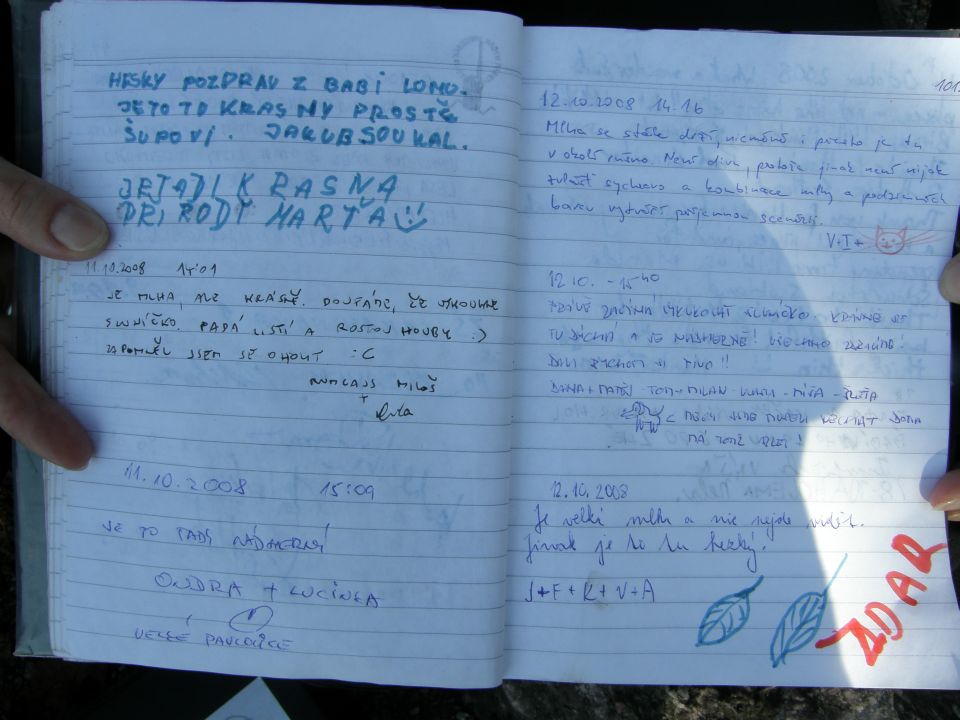 HESKY POZDRAV Z BABI LOMU.
JETO TU KRASNY PROSTĚ
ŠUPOVÍ. JAKUB SOUKAL.
JETADI KRASNA
PŘIRODY MARŤA
11.10.2008 14:01
JE MLHA, ALE KRÁSNĚ. DOUFÁME, ŽE VYKOUKNE
SLUNÍČKO. PADÁ LISTÍ A ROSTOJ HOUBY :)
ZAPOMNĚL JSEM SE OHOLIT :C
RUMCAJS MILOŠ
+
11.10.2008 15:09
JE TO TADY NÁDHERNÝ
ONDRA + LUCINKA
VELKÉ PAVLOVICE
101
12.10.2008 14.16
Mlha se stále drží, nicméně i přesto je tu
v okolí rušno. Není divu, protože jinak není nijak
zvlášť sychravo a kombinace mlhy a podzimních
barev vytváří příjemnou scenérii.
V+I+
12.10. - 15 40
PRÁVĚ ZAČÍNÁ VYKUKOVAT SLUNÍČKO. KRÁSNĚ SE
TU DÝCHÁ A JE NÁDHERNĚ! VŠECHNO
PIVO!!
DANA + MATĚJ - TOM - MILAN - - MÍŠA -
MUSELI NECHAT DOMA
MÁ TOTIŽ !
12.10.2008
Je velká mlha a nic nejde vidět.
Jinak je to tu hezký.
J+F+K+V+A
ZDAR